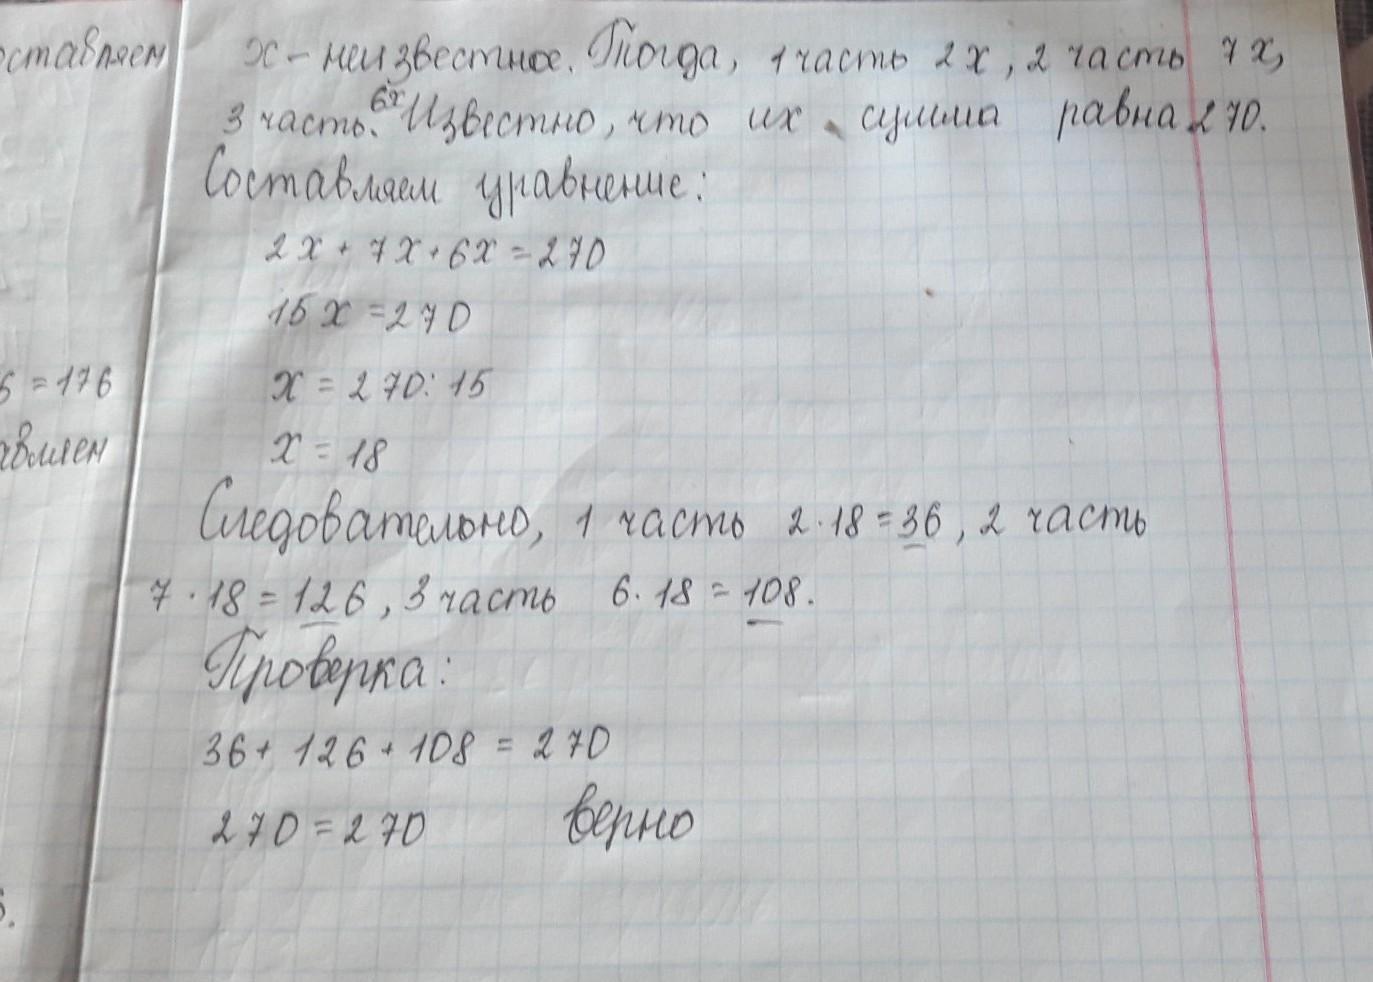 оставляем
x - неизвестное. Тогда, 1 часть 2x, 2 часть 7x,
6x
3 часть. Известно, что их сумма равна 270.
Составляем уравнение:
2x + 7x + 6x = 270
15x = 270
x = 270 : 15
x = 18
Следовательно, 1 часть 2 · 18 = 36, 2 часть
7 · 18 = 126, 3 часть 6 · 18 = 108.
Проверка:
36 + 126 + 108 = 270
270 = 270 верно
= 176
авляем